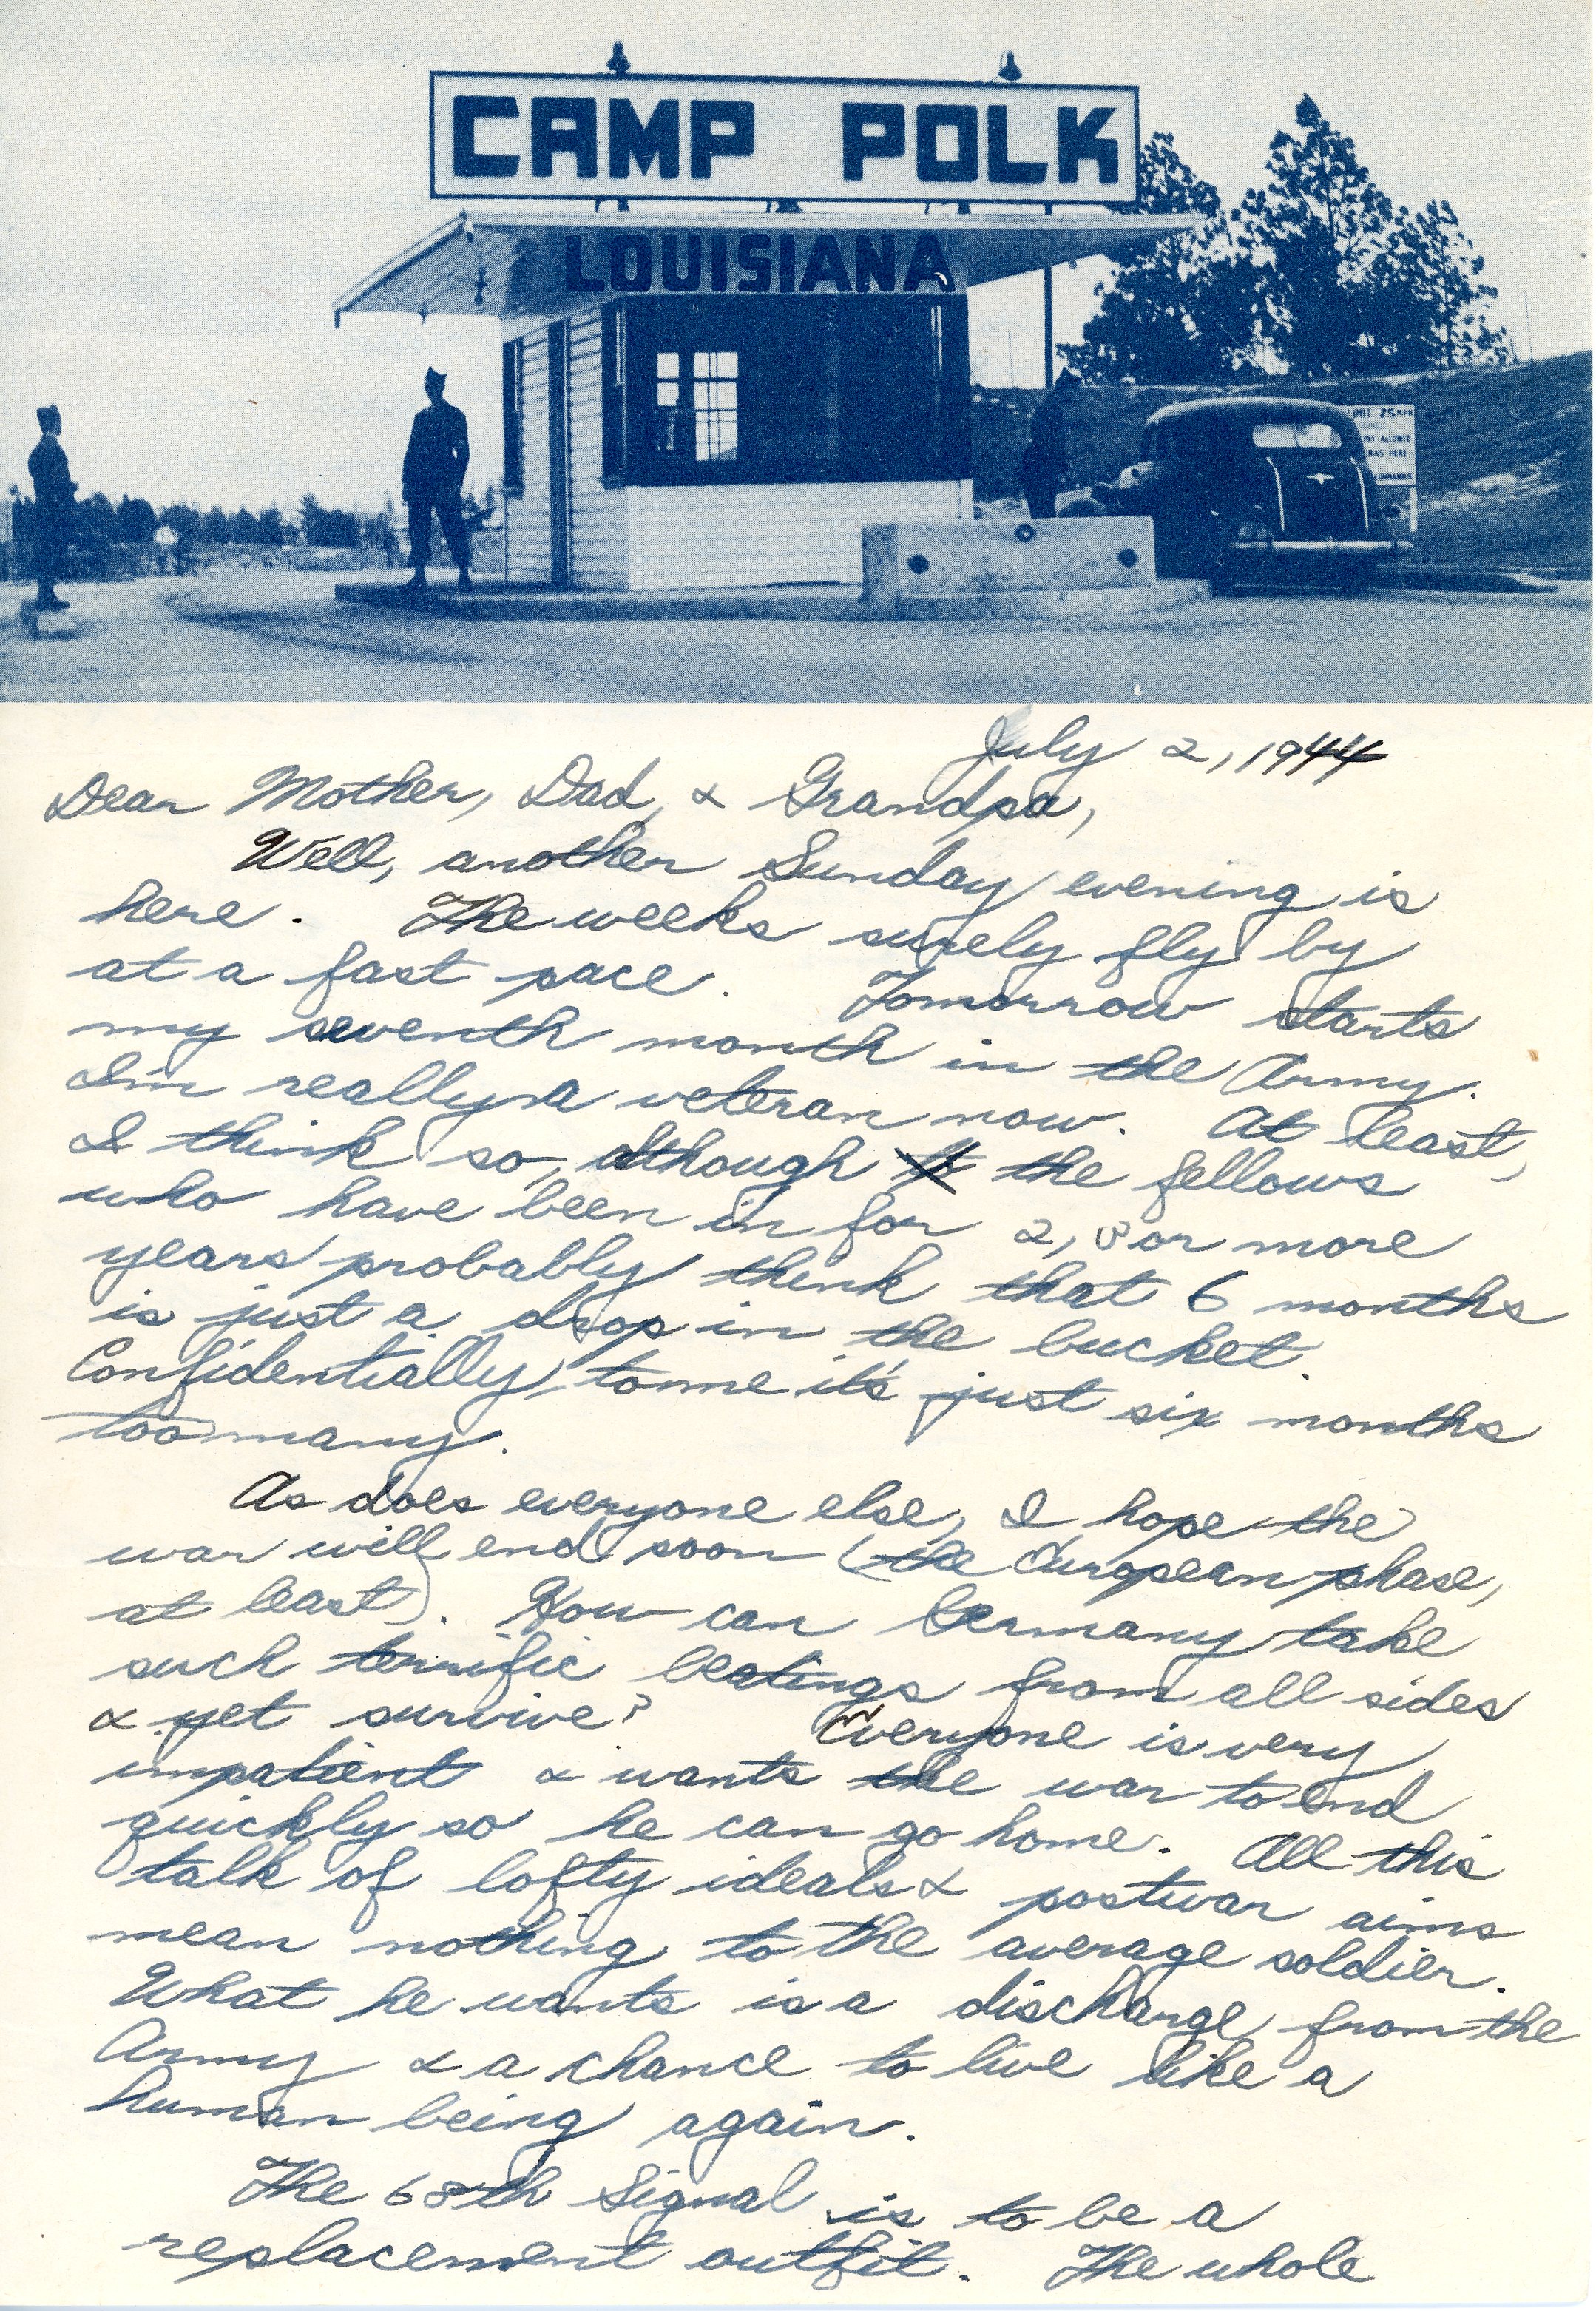 CAMP POLK
LOUISIANA
LIMIT 25 MPH
ALLOWED
HERE
July 2, 1944
Dear Mother, Dad, & Grandpa,
Well, another Sunday evening is
here. The weeks surely fly by
at a fast pace. Tomorrow starts
my seventh month in the Army.
I'm really a veteran now. At least,
I think so, although the fellows
who have been in for 2, 3 or more
years probably think that 6 months
is just a drop in the bucket.
Confidentially, to me it's just six months
too many.
As does everyone else, I hope the
war will end soon (the European phase,
at least). How can Germany take
such terrific beatings from all sides
& yet survive? Everyone is very
impatient & wants the war to end
quickly so he can go home. All this
talk of lofty ideals & postwar aims
mean nothing to the average soldier.
What he wants is a discharge from the
Army & a chance to live like a
human being again.
The 68th Signal is to be a
replacement outfit. The whole